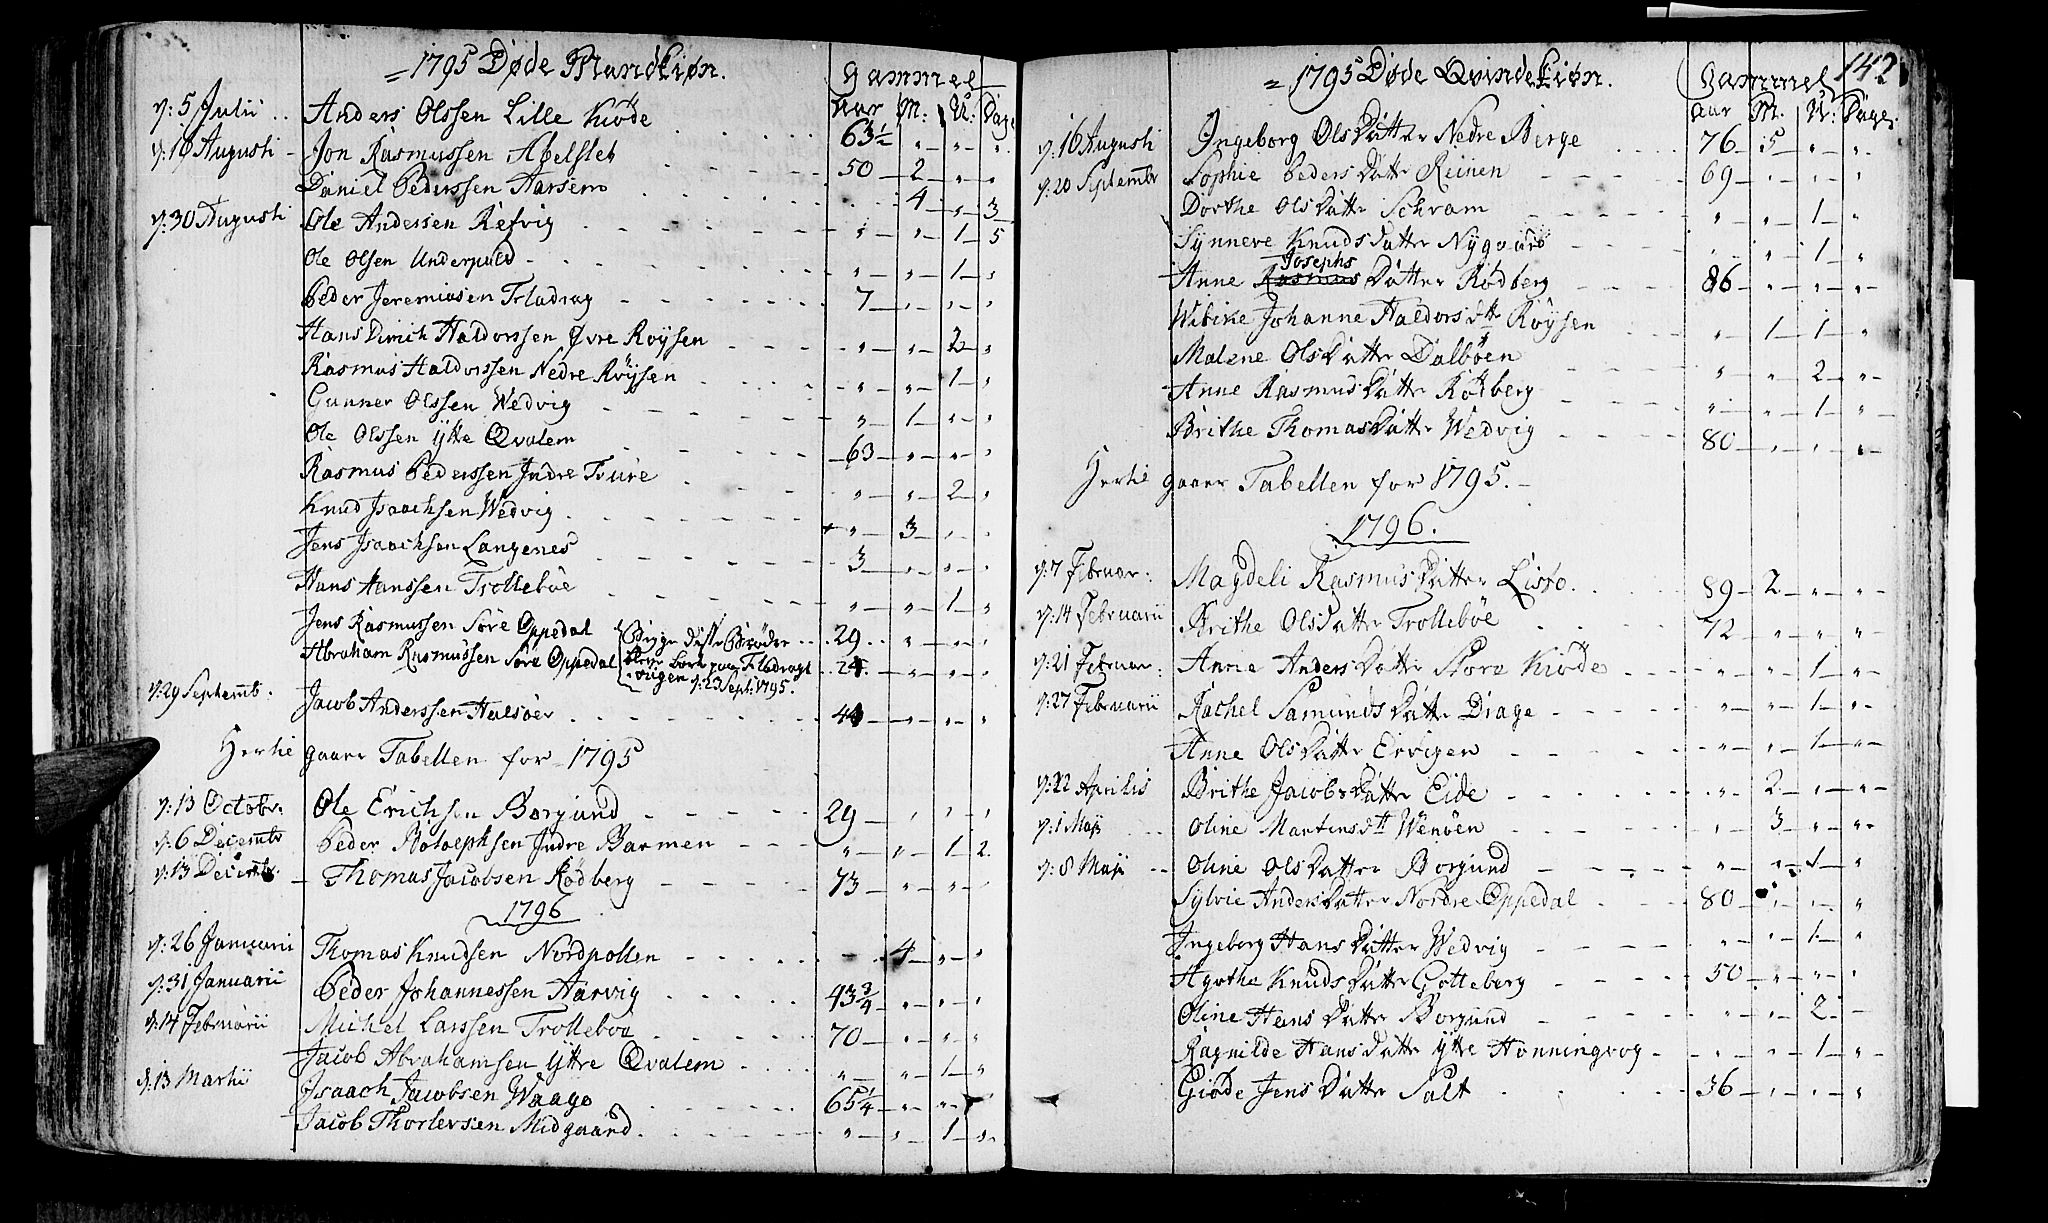 1795 Døde Mandkiøn. Gammel
Aar M: U: Dage
d: 5 Julii Anders Olssen Lille Kiöde 63½ " " "
d: 16 Augusti Jon Rasmussen Apelsled 50 2 " "
Daniel Pederssen Aarsem 4 " 3
d: 30 Augusti Ole Andersen Refvig " " 1 5
Ole Olsen Underpuld " " 1 "
Peder Jeremiasen Fladrag 7 " " "
Hans Dirich Haldorssen Øvre Röysen " " 2 "
Rasmus Haldorssen Nedre Röysen " " 1 "
Gunner Olssen Wedvig " 1 " "
Ole Olssen Ytte Qvalem 63 " " "
Rasmus Pederssen Indre " " 2 "
Knud Isaachsen Wedvig " 3 " "
Jens Isaachsen Langenes 3 " " "
Hans Hanssen Trolleböe " " 1 "
Jens Rasmussen Söre Oppedal 29 " " "
Abraham Rasmussen Söre Oppedal 24 " " "
Begge disse Brödre
bleve borte paa Fladrags
vogen d: 23 Sept: 1795.
d: 29 Septemb. Jacob Anderssen Halsöer 44 " " "
Hertil gaaer Tabellen for 1795
d: 13 Octobr. Ole Erichsen Borgund 29 " " "
d: 6 Decembr Peder Botolphsen Indre Barmen " " 1 2
d: 13 Decembr. Thomas Jacobsen Rödberg 73 " " "
1796
d: 26 Januarii Thomas Knudsen Nordpollen 4 " "
d: 31 Januarii Peder Johannessen Aarvig 43¾ " " "
d: 14 Februarii Michel Larssen Trolleboe 70 " " "
Jacob Abrahamsen Ytre Qvalem " " 1 "
d: 13 Martii Isaach Jacobsen Waage 65¼ " " "
Jacob Thorlevsen Midgaard " " 1 "
1795 Døde Qvindekiøn. Gammel 142
Aar M. U: Dage
d: 16 Augusti Ingeborg Olsdatter Nedre Berge 76 5 " "
d: 20 Septembr Sophie Pedersdatter Reinen 69 " " "
Dorthe Olsdatter Schram " " 1 "
Synneve Knudsdatter Nygaard " " 1 "
Josephs
Anne Rasmusdatter Rödberg 86 " " "
Wibike Johanne Haldorsdtt Röysen " 1 1 "
Malene Olsdatter Dalböen " " 2 "
Anne Rasmusdatter Rödberg " " 1 "
Brithe Thomasdatter Wedvig 80 " " "
Hertil gaaer Tabellen for 1795.
1796.
d: 7 Februar. Magdeli Rasmusdatter Listo 89 2 " "
d: 14 Februarii Brithe Olsdatter Trolleböe 72 " " "
d: 21 Februar. Anne Andersdatter Store Kiöde " " 1 "
d: 27 Februarii Rachel Samundsdatter Drage " " 1 "
Anne Olsdatter Ervigen " " 1 "
d: 22 Aprilis Brithe Jacobsdatter Eide " 2 " "
d: 1 Maji Oline Martinsdtt Wenöen " 3 " "
d: 8 Maji Oline Olsdatter Borgund " " 1 "
Sylvie Andersdatter Nordre Oppedal 80 " " "
Ingeborg Hansdatter Wedvig " " 1 "
Agothe Knudsdatter Gotteberg 50 " " "
Oline Hansdatter Borgund " " 2 "
Ragnilde Hansdatter Ytte Honningsvog " " 1 "
Giöde Jensdatter Salt 36 " " "